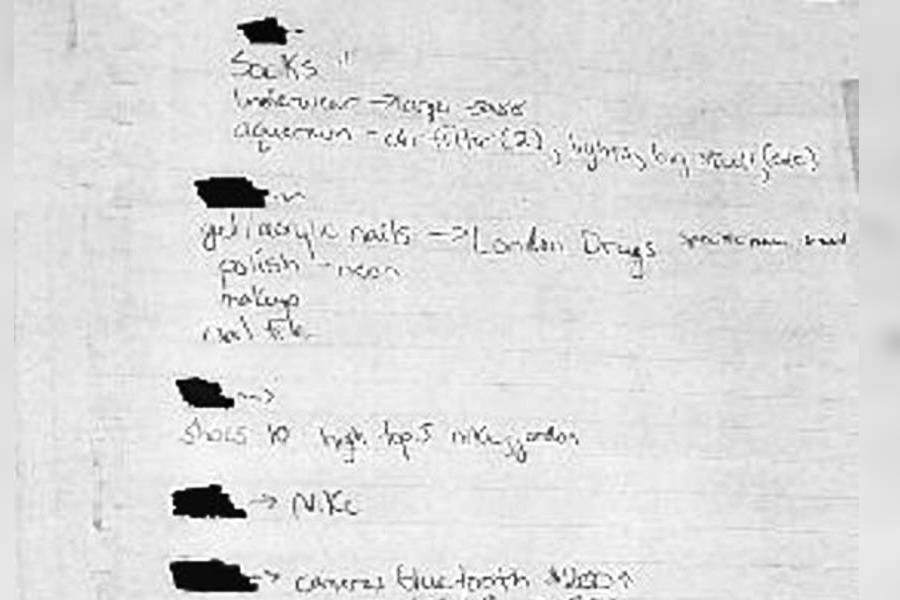 Socks "
underwear → large
aquarium - air filter (2), lights, big
gel/acrylic nails → London Drugs
polish - neon
makeup
nail
shoes 10 high tops nike, jordan
→ Nike
→ camera bluetooth $200 ↑